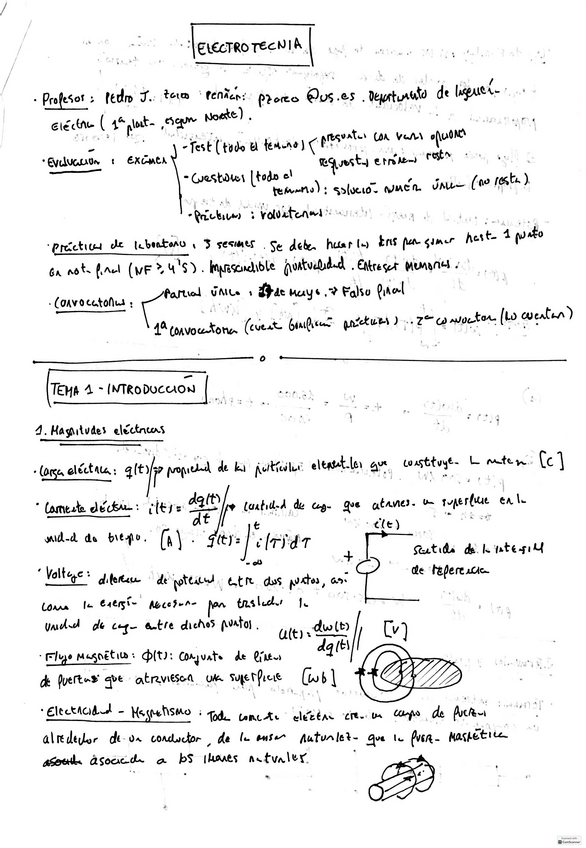 ELECTROTECNIA
· Profesor: Pedro J. Zarco pzarco@us.es. Departamento de Ingenierí-
Eléctrica (1ª plant-, esquina Noreste).
· Evaluación: exámen - Test (todo el temario) preguntas con varias opciones
respuestas erróneas restan
- Cuestiones (todo el
temario): solución numér. única (no resta).
- Prácticas: voluntarias
· Prácticas de laboratorio: 3 sesiones. Se deben hacer las tres para sumar hasta 1 punto
en nota final (NF ≥ 4'5). Imprescindible puntualidad. Entregar memorias.
· Convocatorias: Parcial único: de Mayo. → Falso Final
1ª convocatoria (cuenta bonificación prácticas) 2ª convocatoria (no cuentan)
TEMA 1 - INTRODUCCIÓN
1. Magnitudes eléctricas
· Carga eléctrica: q(t) // → propiedad de las partículas elementales que constituyen la materia [C]
· Corriente eléctrica: i(t) = dq(t)/dt // → cantidad de carga que atraviesa un superficie en la
unidad de tiempo. [A] · q(t) = ∫_{-∞}^{t} i(τ) dτ
i(t)
+
sentido de la intensidad
de referencia
· Voltaje: diferencia de potencial entre dos puntos, así
como la energía necesaria para trasladar la
unidad de carga entre dichos puntos. u(t) = dw(t)/dq(t) // [V]
· Flujo Magnético: Φ(t): conjunto de líneas
de fuerzas que atraviesan una superficie [Wb]
· Electricidad - Magnetismo: Toda corriente eléctrica crea un campo de fuerzas
alrededor de un conductor, de la misma naturaleza que la fuerza magnética
asociada a los imanes naturales.